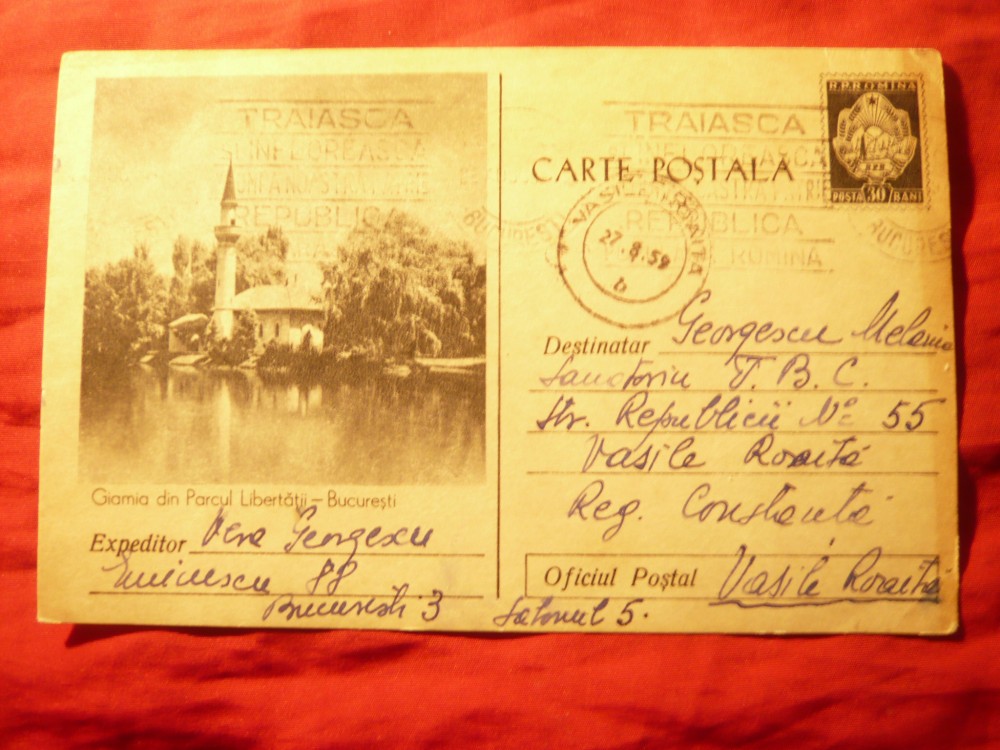 TRAIASCA
SI INFLOREASCA
REPUBLICA
Giamia din Parcul Libertății – București
Expeditor Vera Georgescu
Eminescu 88
București 3
TRAIASCA
SI INFLOREASCA
REPUBLICA
ROMINA
BUCUREȘTI
CARTE POȘTALĂ
R.P.ROMINA
R.P.R.
POSTA 30 BANI
BUCUREȘTI
VASILE ROAITA
27.8.59
b
Destinatar Georgescu Melania
Sanatoriu T.B.C.
Str. Republicii No 55
Vasile Roaită
Reg. Constanța
Oficiul Poștal Vasile Roaită
Salonul 5.